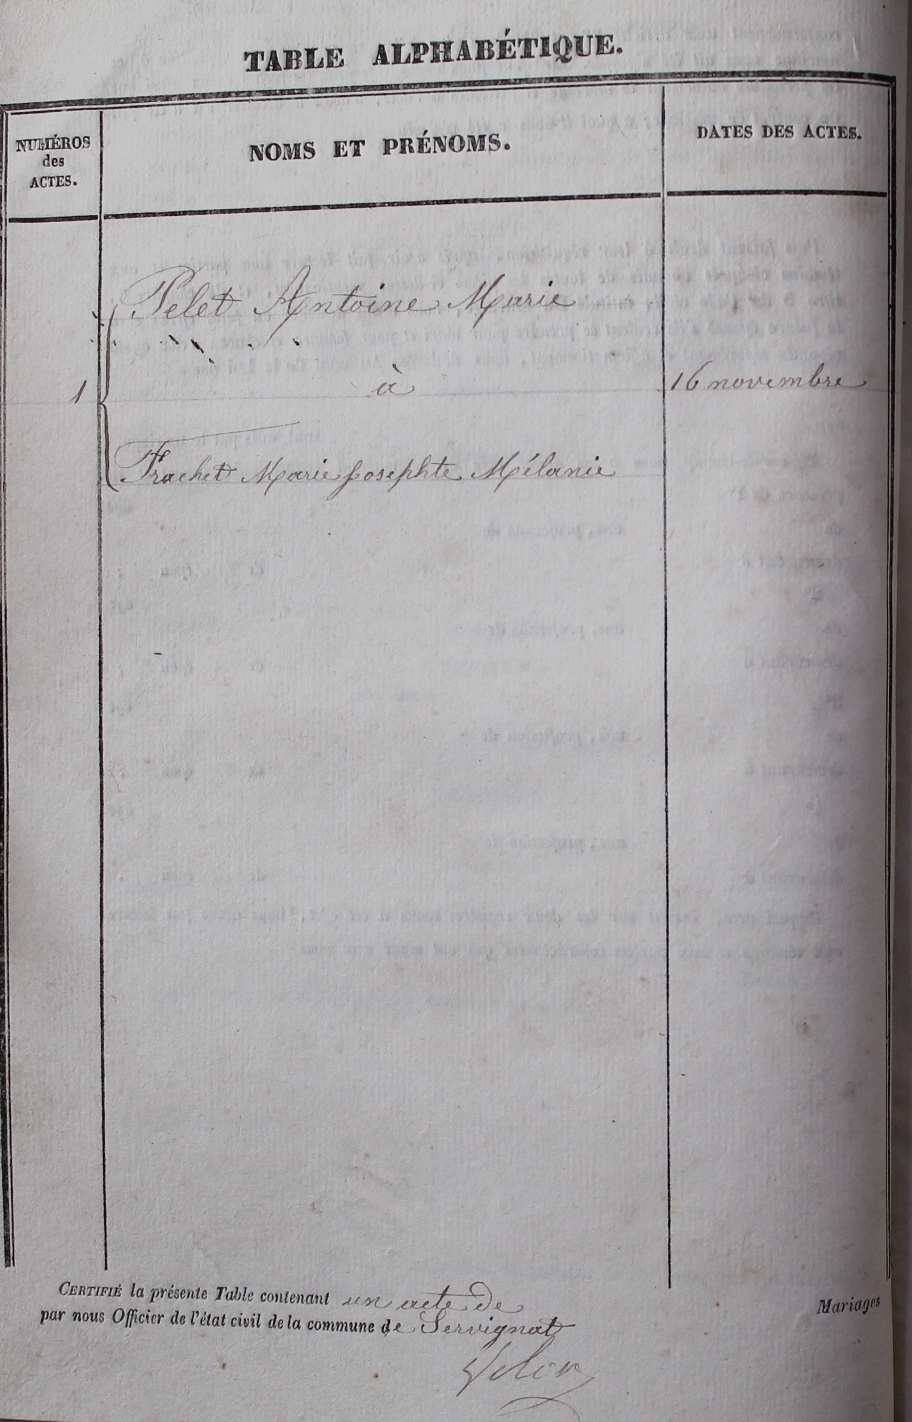 TABLE ALPHABÉTIQUE.
NUMÉROS
des
ACTES.
NOMS ET PRÉNOMS.
DATES DES ACTES.
Pelet Antoine Marie
1
à
16 novembre
Frachet Marie Josephte Mélanie
CERTIFIÉ la présente Table contenant un acte de
Mariages
par nous Officier de l'état civil de la commune de Servignat